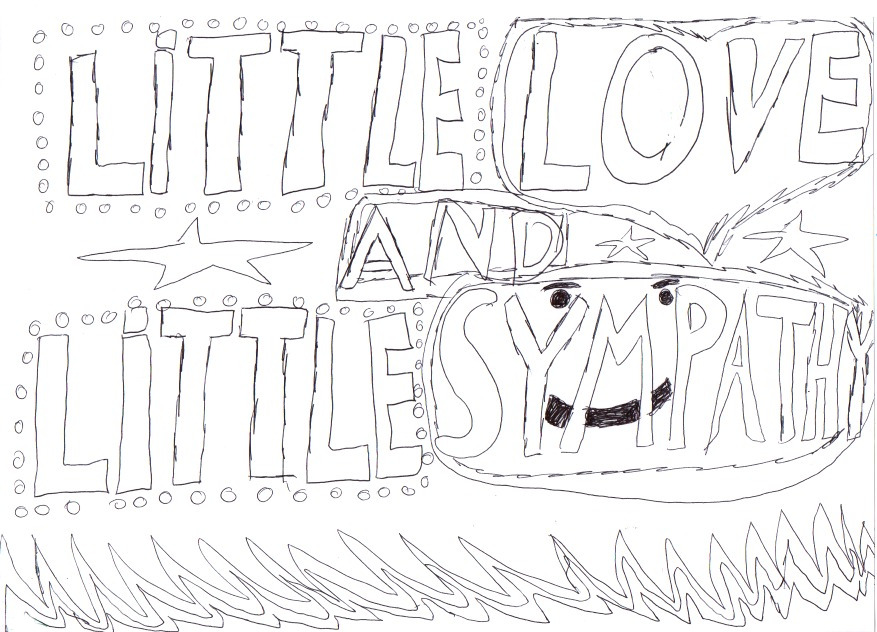 LiTTLE LOVE
AND
LiTTLE SYMPATHY